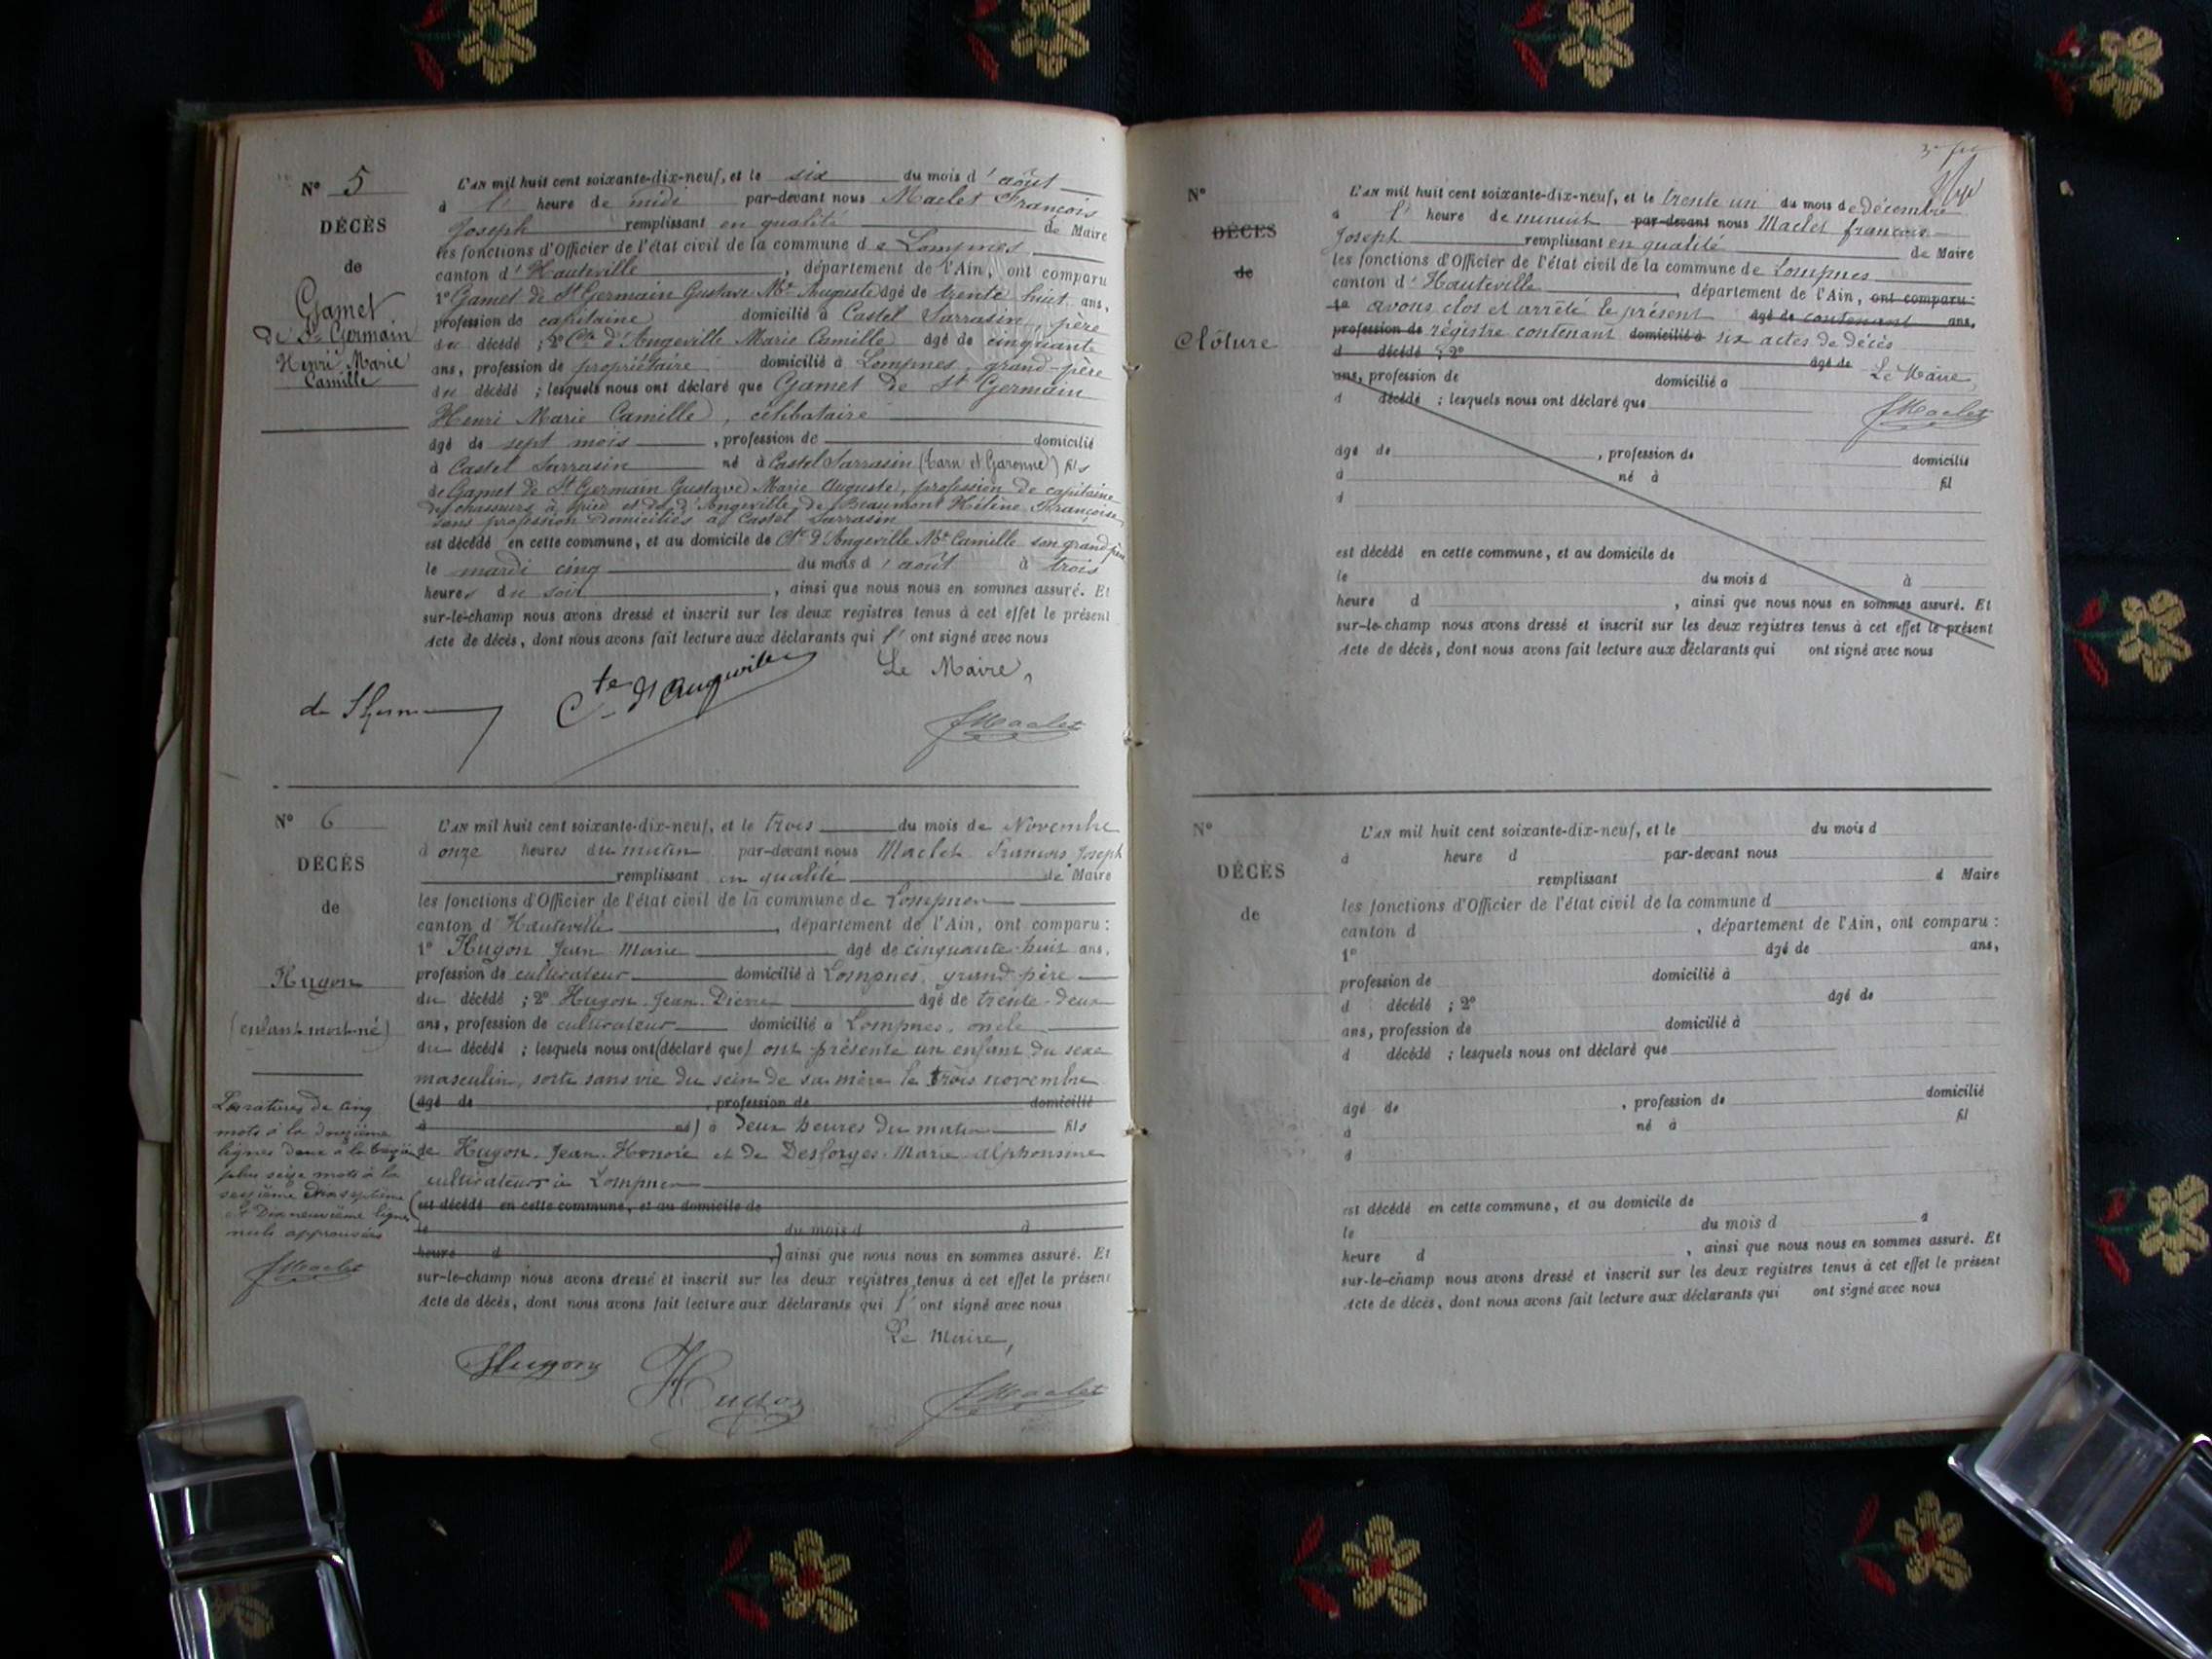 N° 5
DÉCÈS
de
Gamet
de St Germain
Henri Marie
Camille
L'AN mil huit cent soixante-dix-neuf, et le six du mois d'août
à l' heure de midi par-devant nous Maclet François
Joseph remplissant en qualité de Maire
les fonctions d'Officier de l'état civil de la commune de Lompnes
canton d'Hauteville, département de l'Ain, ont comparu
1° Gamet de St Germain Gustave Me Auguste âgé de trente huit ans,
profession de capitaine domicilié à Castel Sarrasin, père
du décédé ; 2° Cte d'Angeville Marie Camille âgé de cinquante
ans, profession de propriétaire domicilié à Lompnes, grand-père
du décédé ; lesquels nous ont déclaré que Gamet de St Germain
Henri Marie Camille, célibataire
âgé de sept mois, profession de domicilié
à Castel Sarrasin né à Castel Sarrasin (Tarn et Garonne) fils
de Gamet de St Germain Gustave Marie Auguste, profession de capitaine
des chasseurs à pied et de d'Angeville de Beaumont Hélène Françoise
sans profession domiciliés à Castel Sarrasin
est décédé en cette commune, et au domicile de Cte d'Angeville Me Camille son grand père
le mardi cinq du mois d'août à trois
heures du soir, ainsi que nous nous en sommes assuré. Et
sur-le-champ nous avons dressé et inscrit sur les deux registres tenus à cet effet le présent
Acte de décès, dont nous avons fait lecture aux déclarants qui l'ont signé avec nous
Le Maire,
de St Germain Cte d'Angeville JMaclet
N° 6
DÉCÈS
de
Hugon
(enfant mort-né)
L'AN mil huit cent soixante-dix-neuf, et le trois du mois de Novembre
à onze heures du matin par-devant nous Maclet François Joseph
remplissant en qualité de Maire
les fonctions d'Officier de l'état civil de la commune de Lompnes
canton d'Hauteville, département de l'Ain, ont comparu :
1° Hugon Jean Marie âgé de cinquante-huit ans,
profession de cultivateur domicilié à Lompnes, grand-père
du décédé ; 2° Hugon Jean Pierre âgé de trente-deux
ans, profession de cultivateur domicilié à Lompnes, oncle
du décédé ; lesquels nous ont (déclaré que) ont présenté un enfant du sexe
masculin, sorti sans vie du sein de sa mère le trois novembre
(âgé de , profession de domicilié
à né) à deux heures du matin fils
de Hugon Jean Honoré et de Desforges Marie Alphonsine
cultivateurs à Lompnes
(est décédé en cette commune, et au domicile de
le du mois d à
heure d ) ainsi que nous nous en sommes assuré. Et
sur-le-champ nous avons dressé et inscrit sur les deux registres tenus à cet effet le présent
Acte de décès, dont nous avons fait lecture aux déclarants qui l'ont signé avec nous
Les ratures de cinq
mots à la douzième
lignes deux à la
plus seize mots à la
seizième dixseptième
et dixneuvième lignes
nuls approuvés
JMaclet
Le Maire,
Hugon Hugon JMaclet
N°
DÉCÈS
de
Clôture
L'AN mil huit cent soixante-dix-neuf, et le trente un du mois de décembre
à l' heure de minuit par-devant nous Maclet françois
Joseph remplissant en qualité de Maire
les fonctions d'Officier de l'état civil de la commune de Lompnes
canton d'Hauteville, département de l'Ain, ont comparu :
1° avons clos et arrêté le présent âgé de contenant ans,
profession de régistre contenant domicilié à six actes de décès
d décédé ; 2° âgé de
Le Maire,
ans, profession de domicilié à
d décédé ; lesquels nous ont déclaré que
JMaclet
âgé de , profession de domicilié
à né à fil
d
est décédé en cette commune, et au domicile de
le du mois d à
heure d , ainsi que nous nous en sommes assuré. Et
sur-le-champ nous avons dressé et inscrit sur les deux registres tenus à cet effet le présent
Acte de décès, dont nous avons fait lecture aux déclarants qui ont signé avec nous
N°
DÉCÈS
de
L'AN mil huit cent soixante-dix-neuf, et le du mois d
à heure d par-devant nous
remplissant d Maire
les fonctions d'Officier de l'état civil de la commune d
canton d , département de l'Ain, ont comparu :
1° âgé de ans,
profession de domicilié à
d décédé ; 2° âgé de
ans, profession de domicilié à
d décédé ; lesquels nous ont déclaré que
âgé de , profession de domicilié
à né à fil
d
est décédé en cette commune, et au domicile de
le du mois d à
heure d , ainsi que nous nous en sommes assuré. Et
sur-le-champ nous avons dressé et inscrit sur les deux registres tenus à cet effet le présent
Acte de décès, dont nous avons fait lecture aux déclarants qui ont signé avec nous